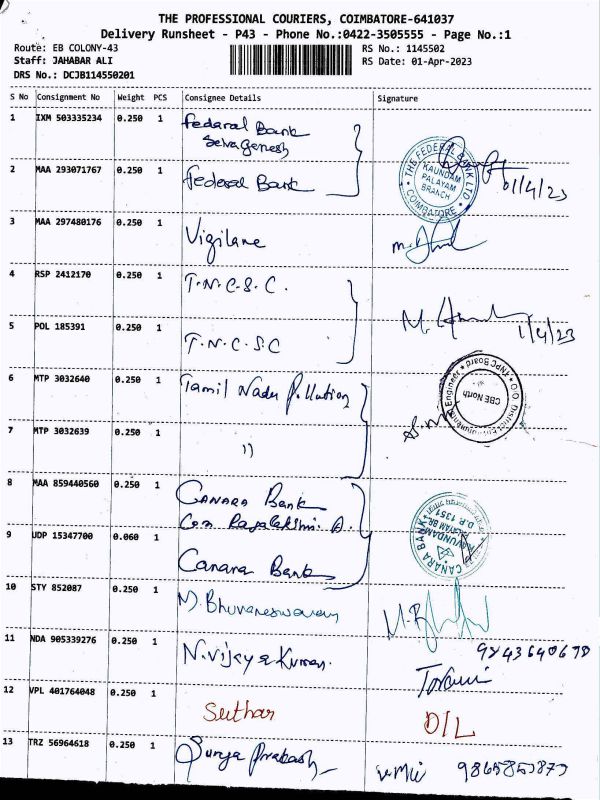 THE PROFESSIONAL COURIERS, COIMBATORE-641037
Delivery Runsheet - P43 - Phone No.:0422-3505555 - Page No.:1
Route: EB COLONY-43
RS No.: 1145502
Staff: JAHABAR ALI
RS Date: 01-Apr-2023
DRS No.: DCJB114550201
S No Consignment No Weight PCS Consignee Details Signature
1 IXM 503335234 0.250 1 Fedaral Bank
Selvaganesh
THE FEDERAL BANK LTD
KAUNDAM
PALAYAM
BRANCH
COIMBATORE
01/4/23
2 MAA 293071767 0.250 1 federal Bank
3 MAA 297480176 0.250 1 Vigilane
4 RSP 2412170 0.250 1 T.N.C.S.C.
1/4/23
5 POL 185391 0.250 1 T.N.C.S.C
6 MTP 3032640 0.250 1 Tamil Nadu Pollution
O/O. District Engineer TNPC Board
CBE North
7 MTP 3032639 0.250 1 "
8 MAA 859440560 0.250 1 CANARA Bank
Con Rajalakshmi. A.
CANARA BANK
D.P. 1351
9 UDP 15347700 0.060 1 Canara Bank
10 STY 852087 0.250 1 M. Bhuvaneswaran
11 NDA 905339276 0.250 1 N.vijaya Kumar.
9843640678
12 VPL 401764048 0.250 1 Suthar D/L
13 TRZ 56964618 0.250 1 Surya Prakash 9865853873